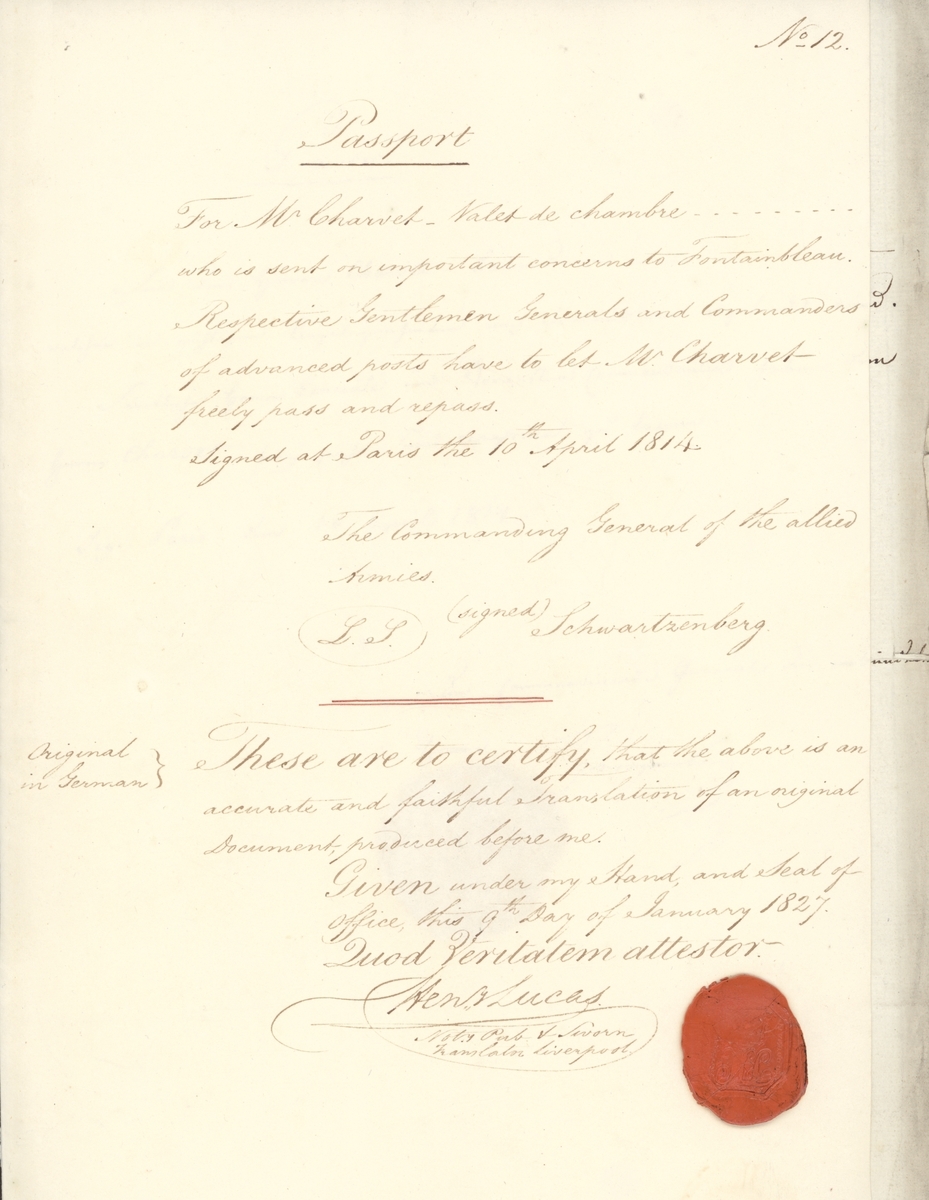 No 12.
Passport
For Mr Charvet - Valet de chambre - - - - - - - - -
who is sent on important concerns to Fontainbleau.
Respective Gentlemen Generals and Commanders
of advanced posts have to let Mr Charvet
freely pass and repass.
Signed at Paris the 10th April 1814:
The Commanding General of the allied
Armies.
L. S. (signed) Schwartzenberg
Original
in German }
These are to certify, that the above is an
accurate and faithful Translation of an original
Document, produced before me.
Given under my Hand, and Seal of
Office, this 9th Day of January 1827.
Quod Veritatem attestor.
Heny Lucas
Noty Pub & Sworn
Translatr Liverpool